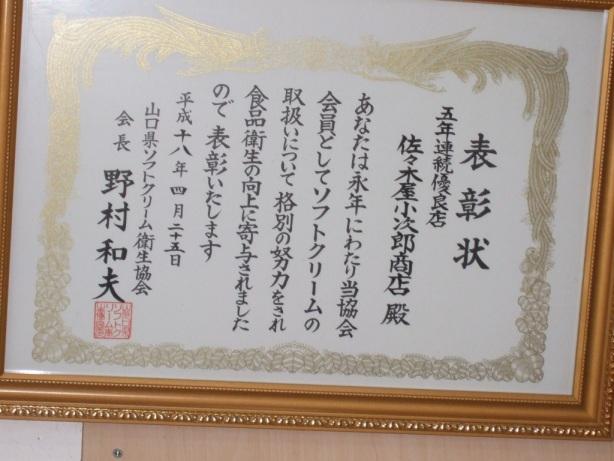 表彰状
五年連続優良店
佐々木屋小次郎商店 殿
あなたは永年にわたり当協会
会員としてソフトクリームの
取扱いについて格別の努力をされ
食品衛生の向上に寄与されました
ので表彰いたします
平成十八年四月二十五日
山口県ソフトクリーム衛生協会
会長 野村和夫